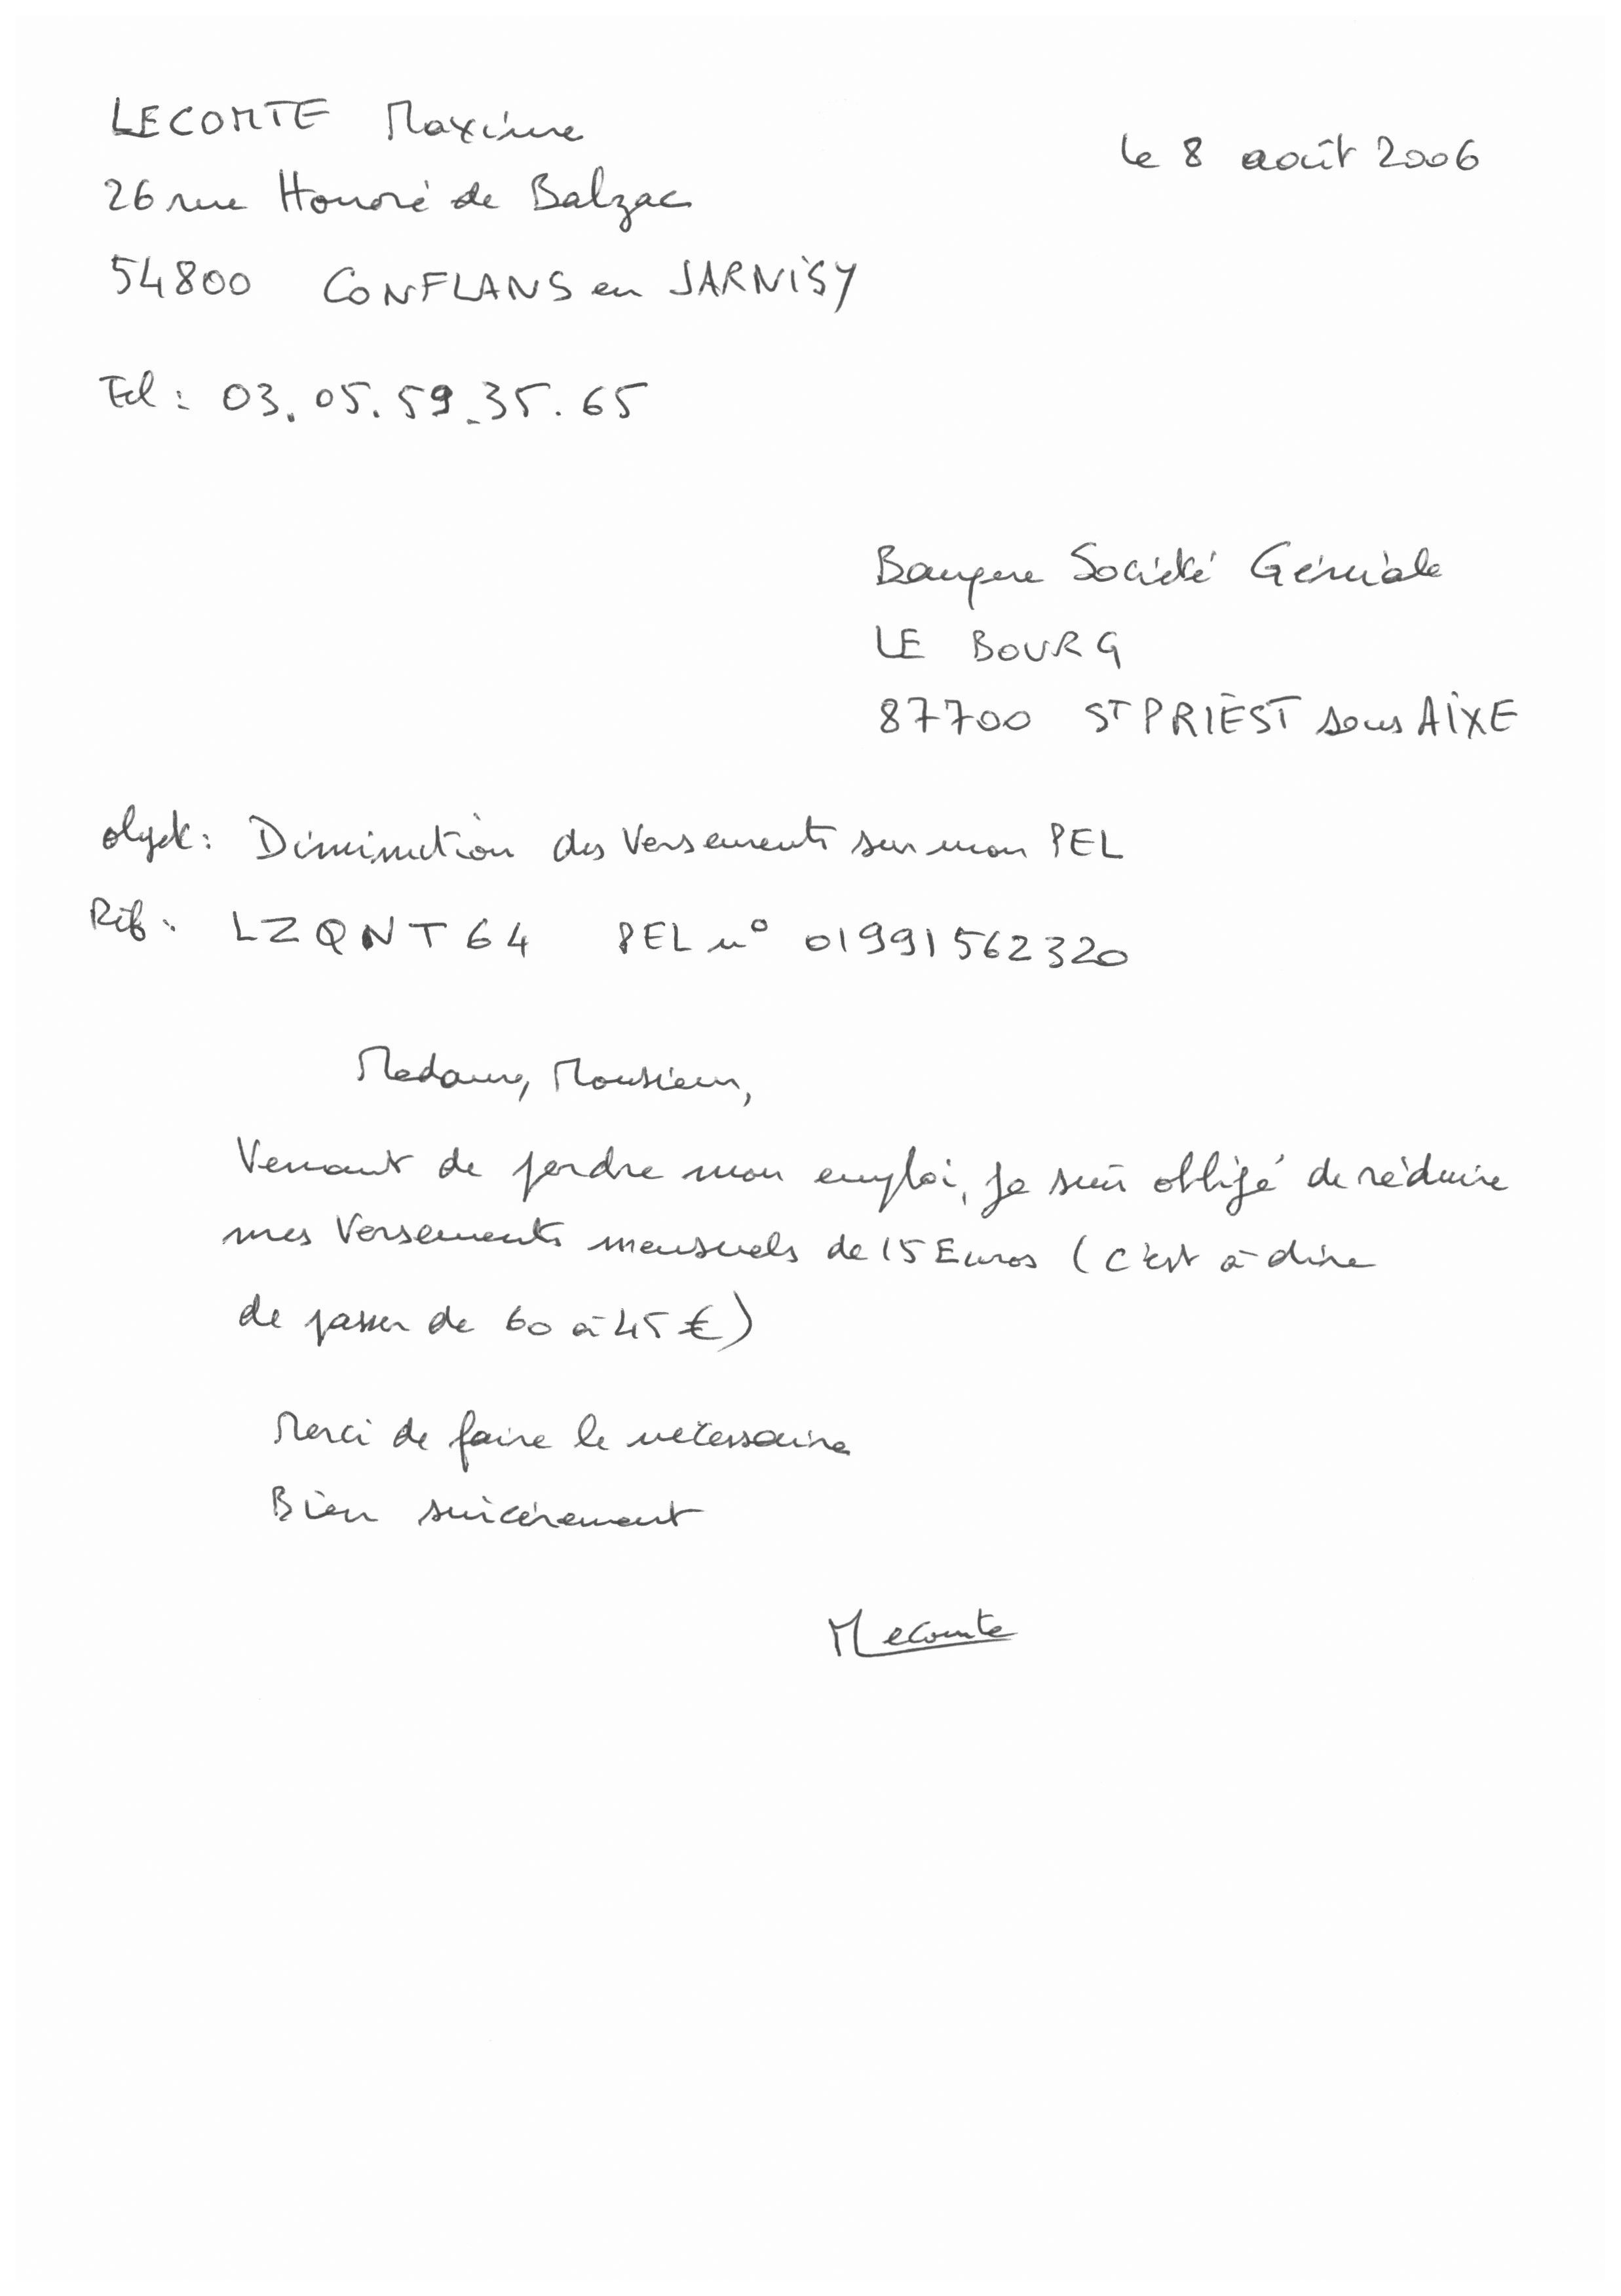 LECOMTE Maxime
le 8 août 2006
26 rue Honoré de Balzac
54800 CONFLANS en JARNISY
Tel : 03.05.59.35.65
Banque Société Générale
LE BOURG
87700 ST PRIEST sous AIXE
objet : Diminution des Versements sur mon PEL
Réf : LZQNT64 PEL n° 01991562320
Madame, Monsieur,
Venant de perdre mon emploi, je suis obligé de réduire
mes Versements mensuels de 15 Euros (c'est à dire
de passer de 60 à 45 €)
Merci de faire le nécessaire
Bien sincérement
MLecomte